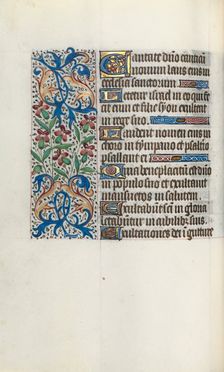 Cantate dno canticu
nouum laus eius in
ecclesia sanctorum
Letetur israel in eo qui fe
cit eum et filie syon exultent
in rege suo
Laudent nomen eius in
choro in tympano et psalterio
psallant ei
Quia beneplacitu est dno
in populo suo et exaltauit
mansuetos in salutem
Exultabunt sci in gloria
letabuntur in cubilibus suis
Exultationes dei i gutture